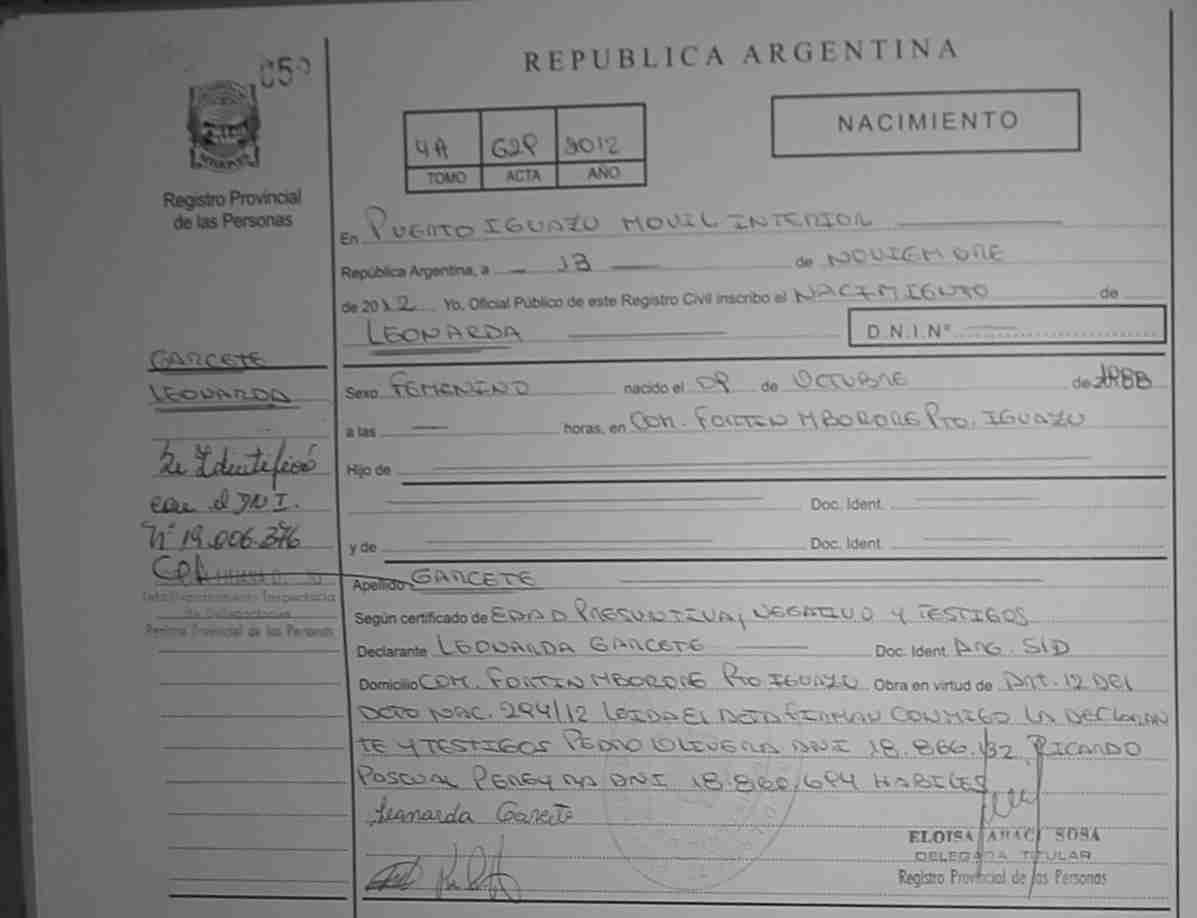 REPUBLICA ARGENTINA
NACIMIENTO
4A 2012
TOMO ACTA AÑO
Registro Provincial
de las Personas
En PUERTO IGUAZU MOVIL INTERIOR
República Argentina, a 13 de NOVIEMBRE
de 2012 Yo, Oficial Público de este Registro Civil inscribo el NACIMIENTO de
LEONARDA D.N.I.Nº
GARCETE
LEONARDA
Se Identificó
con el DNI.
Nº 19.006.376
Sub-Departamento Inspectoría
de Delegaciones
Registro Provincial de las Personas
Sexo FEMENINO nacido el 09 de OCTUBRE de
a las horas, en COM. FORTIN MBORORE PTO. IGUAZU
Hijo de
Doc. Ident.
y de Doc. Ident.
Apellido GARCETE
Según certificado de EDAD PRESUNTIVA, NEGATIVO Y TESTIGOS
Declarante LEONARDA GARCETE Doc. Ident. ARG. S/D
Domicilio COM. FORTIN MBORORE PTO IGUAZU Obra en virtud de ART. 12 DEL
DCTO NAC. 294/12 LEIDA EL ACTA FIRMAN CONMIGO LA DECLARAN
TE Y TESTIGOS PEDRO OLIVERA DNI 18.866.132, RICARDO
PASCUAL PEREYRA DNI 18.860.694 HABILES
Leonarda Garcete
ELOISA ARACI SOSA
DELEGADA TITULAR
Registro Provincial de las Personas